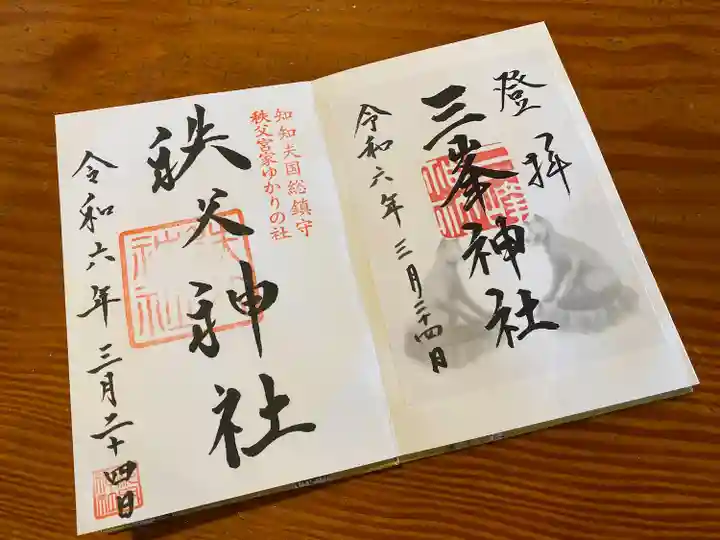 登拝
三峯神社
令和六年三月二十四日
知知夫国総鎮守
秩父宮家ゆかりの社
秩父神社
令和六年三月二十四日